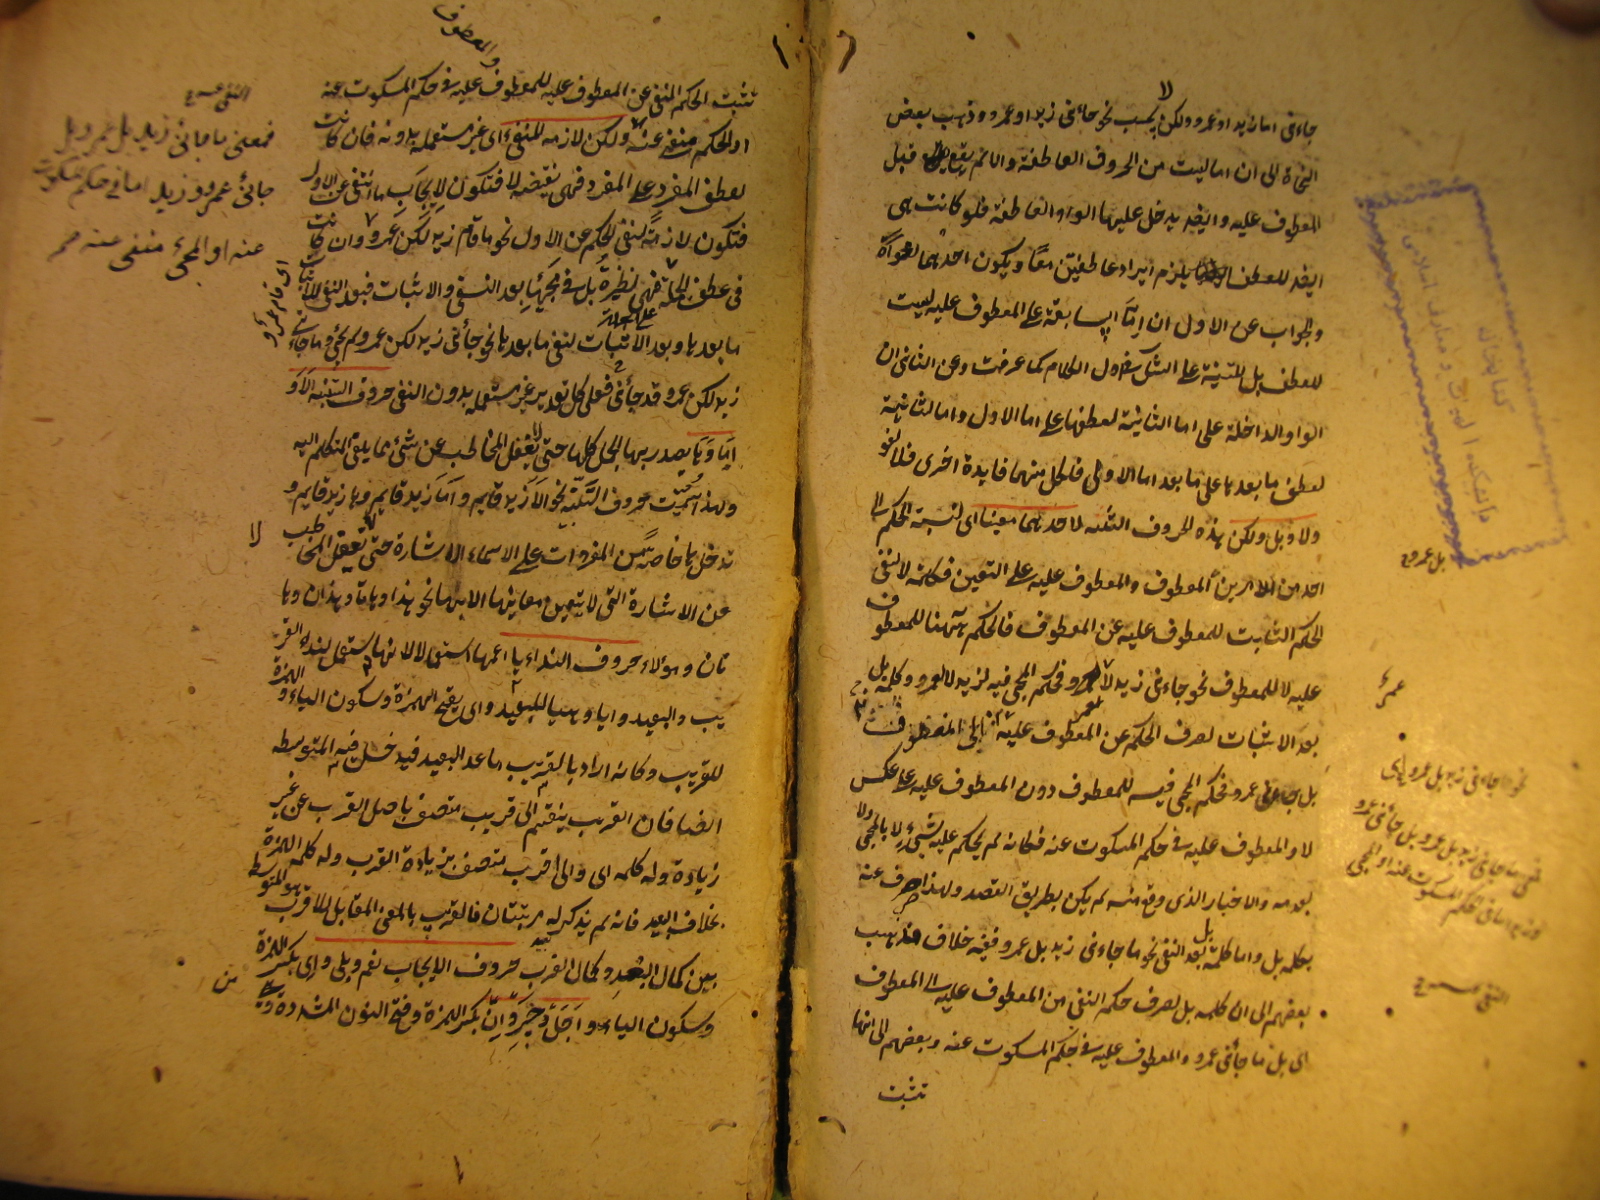 لا
جاءنى اما زيد او عمرو ولكن يجب نحو جاءنى زيد او عمرو وذهب بعض
النحاة الى ان اما ليست من الحروف العاطفة والا لم يقع قبل
المعطوف عليه وايضا يدخل عليها الواو العاطفة فلو كانت هى
ايضا للعطف يلزم ايراد عاطفتين معا ويكون احديهما لغوا
والجواب عن الاول ان اما السابقة على المعطوف عليه ليست
للعطف بل للتنبيه على الشك فى اول الكلام كما عرفت وعن الثانى ان
الواو الداخلة على اما الثانية لعطفها على اما الاولى واما الثانية
لعطف ما بعدها على ما بعد اما الاولى فلكل منهما فايدة اخرى فلا لغو
ولا وبل ولكن هذه الحروف الثلثة لاحدهما معينا اى لنسبة الحكم الى
احد من الامرين المعطوف والمعطوف عليه على التعيين فكلمة لا لنفى
الحكم الثابت للمعطوف عليه عن المعطوف فالحكم ههنا للمعطوف
عليه لا للمعطوف نحو جاءنى زيد لا عمرو فحكم المجئ فيه لزيد لا لعمرو وكلمة بل
بعد الاثبات لصرف الحكم عن المعطوف عليه الى المعطوف
بل عمرو فحكم المجئ فيه للمعطوف دون المعطوف عليه على عكس
لا والمعطوف عليه فى حكم المسكوت عنه فكانه لم يحكم عليه بشئ لا بالمجئ ولا
بعدمه والاخبار الذى وقع منه لم يكن بطريق القصد ولهذا صرف عنه
بكلمه بل واما كلمة بل بعد النفى نحو ما جاءنى زيد بل عمرو ففيه خلاف فذهب
بعضهم الى ان كلمه بل لصرف حكم النفى من المعطوف عليه الى المعطوف
اى بل ما جاءنى عمرو والمعطوف عليه فى حكم المسكوت عنه وبعضهم الى انها
تثبت
بل عمرو
نحو ما جاءنى زيد بل عمرو
والمعطوف
تثبت الحكم المنفى عن المعطوف عليه للمعطوف عليه فى حكم المسكوت عنه
او الحكم منفى عنه ولكن لازمه للنفى اى غير مستعمله بدونه فان كانت
لعطف المفرد على المفرد فهى نقيضه لا فتكون لايجاب ما انتفى عن الاول
فتكون لازمة لنفى الحكم عن الاول نحو ما قام زيد لكن عمرو وان كانت
فى عطف الجملة على الجملة فهى نظيرة بل فى مجيئها بعد النفى والاثبات فبعد النفى لاثبات
ما بعدها وبعد الاثبات لنفى ما بعدها نحو جاءنى زيد لكن عمرو لم يجئ وما جاءنى
زيد لكن عمرو قد جاءنى فعلى كل تقدير غير مستعمله بدون النفى حروف التنبيه الا و
اما وها يصدر بها الجمل كلها حتى لا يغفل المخاطب عن شئ مما يلقى المتكلم اليه
ولهذا سميت حروف التنبيه نحو الا زيد قايم واما زيد قايم وها زيد قايم و
تدخل ها خاصة من المفردات على الاسماء الاشارة حتى لا يغفل المخاطب
عن الاشارة التى لا يتعين معانيها الا بها نحو هذا وهاتا وهذان وها
تان وهولاء حروف النداء يا اعمها استعمالا لانها يستعمل لنداء القر
يب والبعيد وايا وهيا للبعيد واى بفتح الهمزة وسكون الياء والهمزة
للقريب وكانه اراد بالقريب ما عدا البعيد فيدخل فيه المتوسط
ايضا فان القريب ينقسم الى قريب متصف باصل القرب عن غير
زيادة وله كلمه اى والى اقرب متصف بزيادة القرب وله كلمه الهمزة
بخلاف البعيد فانه لم يذكر له مرتبتان فالقريب بالمعنى المقابل للاقرب هو المتوسط
بين كمال البعد وكمال القرب حروف الايجاب نعم وبلى واى بكسر الهمزة
وسكون الياء واجل وجير وان بكسر الهمزة وفتح النون المشددة
فمعنى ما جاءنى زيد بل عمرو بل
جاءنى عمرو وزيد اما فى حكم المسكوت
عنه او المجئ منفى عنه
لا